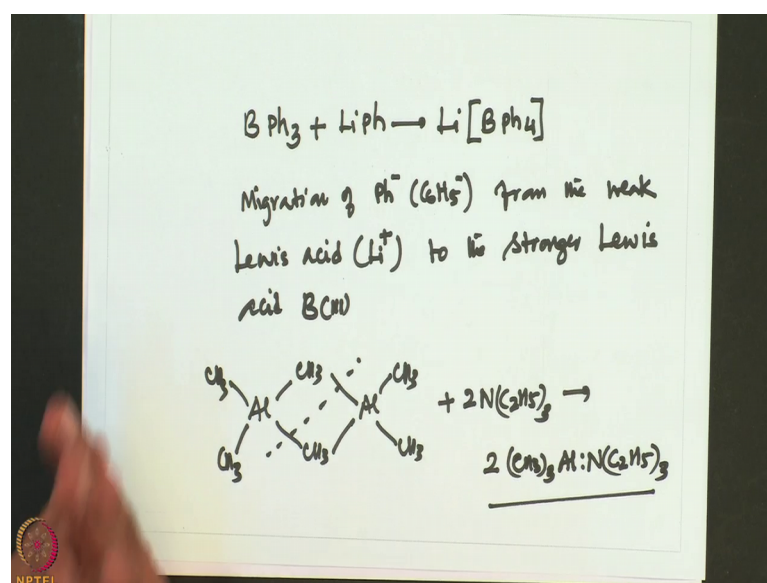 BPh₃ + LiPh → Li[BPh₄]
Migration of Ph⁻ (C₆H₅⁻) from the weak
Lewis acid (Li⁺) to the stronger Lewis
acid B(III)
CH₃ CH₃ CH₃
Al Al + 2N(C₂H₅)₃ →
CH₃ CH₃ CH₃
2 (CH₃)₃Al:N(C₂H₅)₃
NPTEL